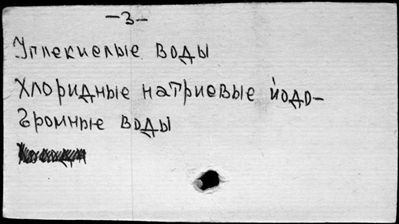 -3-
Углекислые воды
Хлоридные натриевые йодо-
бромные воды